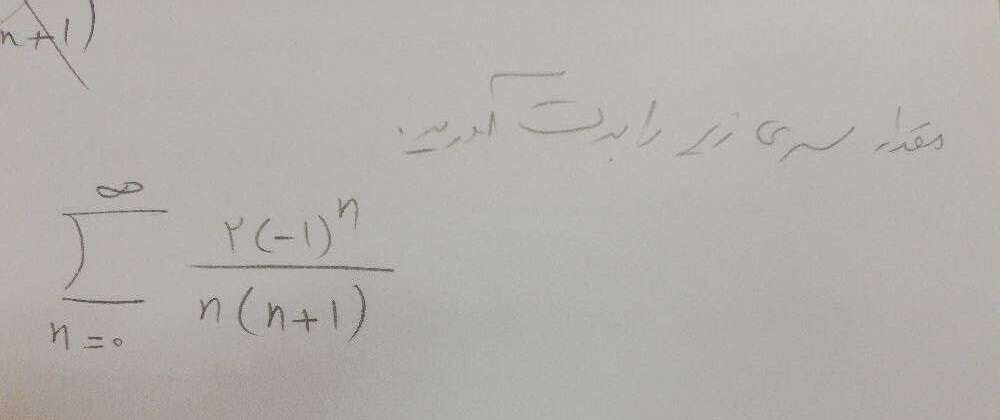 n+1)
مقدار سری زیر را بدست آورید.
∞
∑ ۲(-1)^n / n(n+1)
n=۰